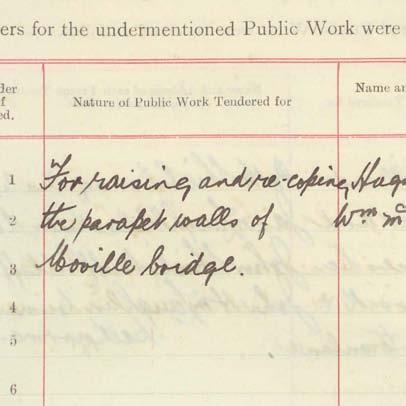 ers for the undermentioned Public Work were
der
f
ed.
Nature of Public Work Tendered for
Name an
1 For raising and re-coping Hug
2 the parapet walls of Wm Mc
3 Moville bridge.
4
5
6